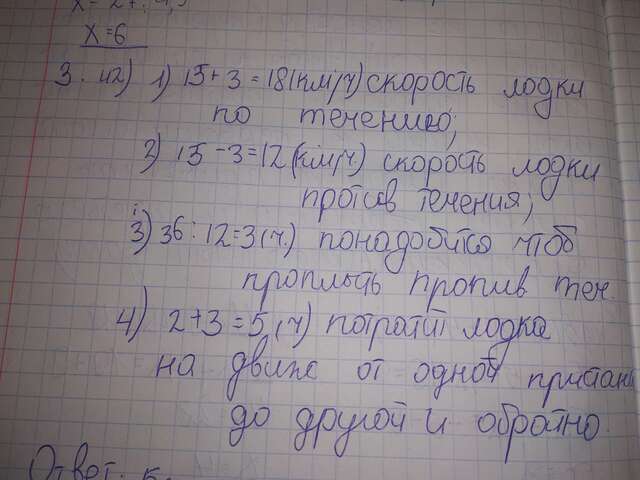 х=6
3. 42) 1) 15+3=18(км/ч) скорость лодки
по течению;
2) 15-3=12(км/ч.) скорость лодки
против течения;
3) 36:12=3(ч.) понадобится чтоб
проплыть против теч.
4) 2+3=5(ч) потратит лодка
на движ от одной пристани
до другой и обратно.
Ответ: 5